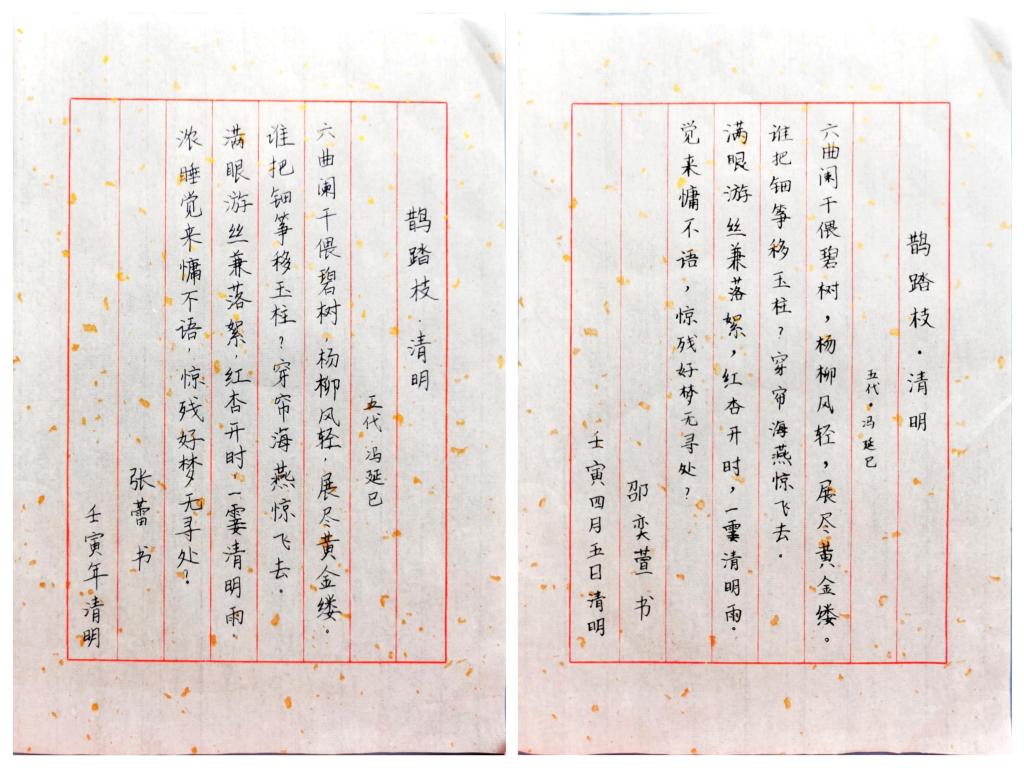 鹊踏枝·清明
五代 冯延巳
六曲阑干偎碧树，杨柳风轻，展尽黄金缕。
谁把钿筝移玉柱？穿帘海燕惊飞去。
满眼游丝兼落絮，红杏开时，一霎清明雨。
浓睡觉来慵不语，惊残好梦无寻处？
张蕾 书
壬寅年清明
鹊踏枝·清明
五代·冯延巳
六曲阑干偎碧树，杨柳风轻，展尽黄金缕。
谁把钿筝移玉柱？穿帘海燕惊飞去。
满眼游丝兼落絮，红杏开时，一霎清明雨。
觉来慵不语，惊残好梦无寻处？
邵奕萱 书
壬寅四月五日清明